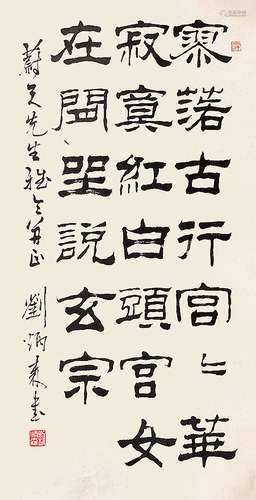 寥落古行宮〻華
寂寞紅白頭宮女
在閒坐說玄宗
先生雅并正
劉炳森書